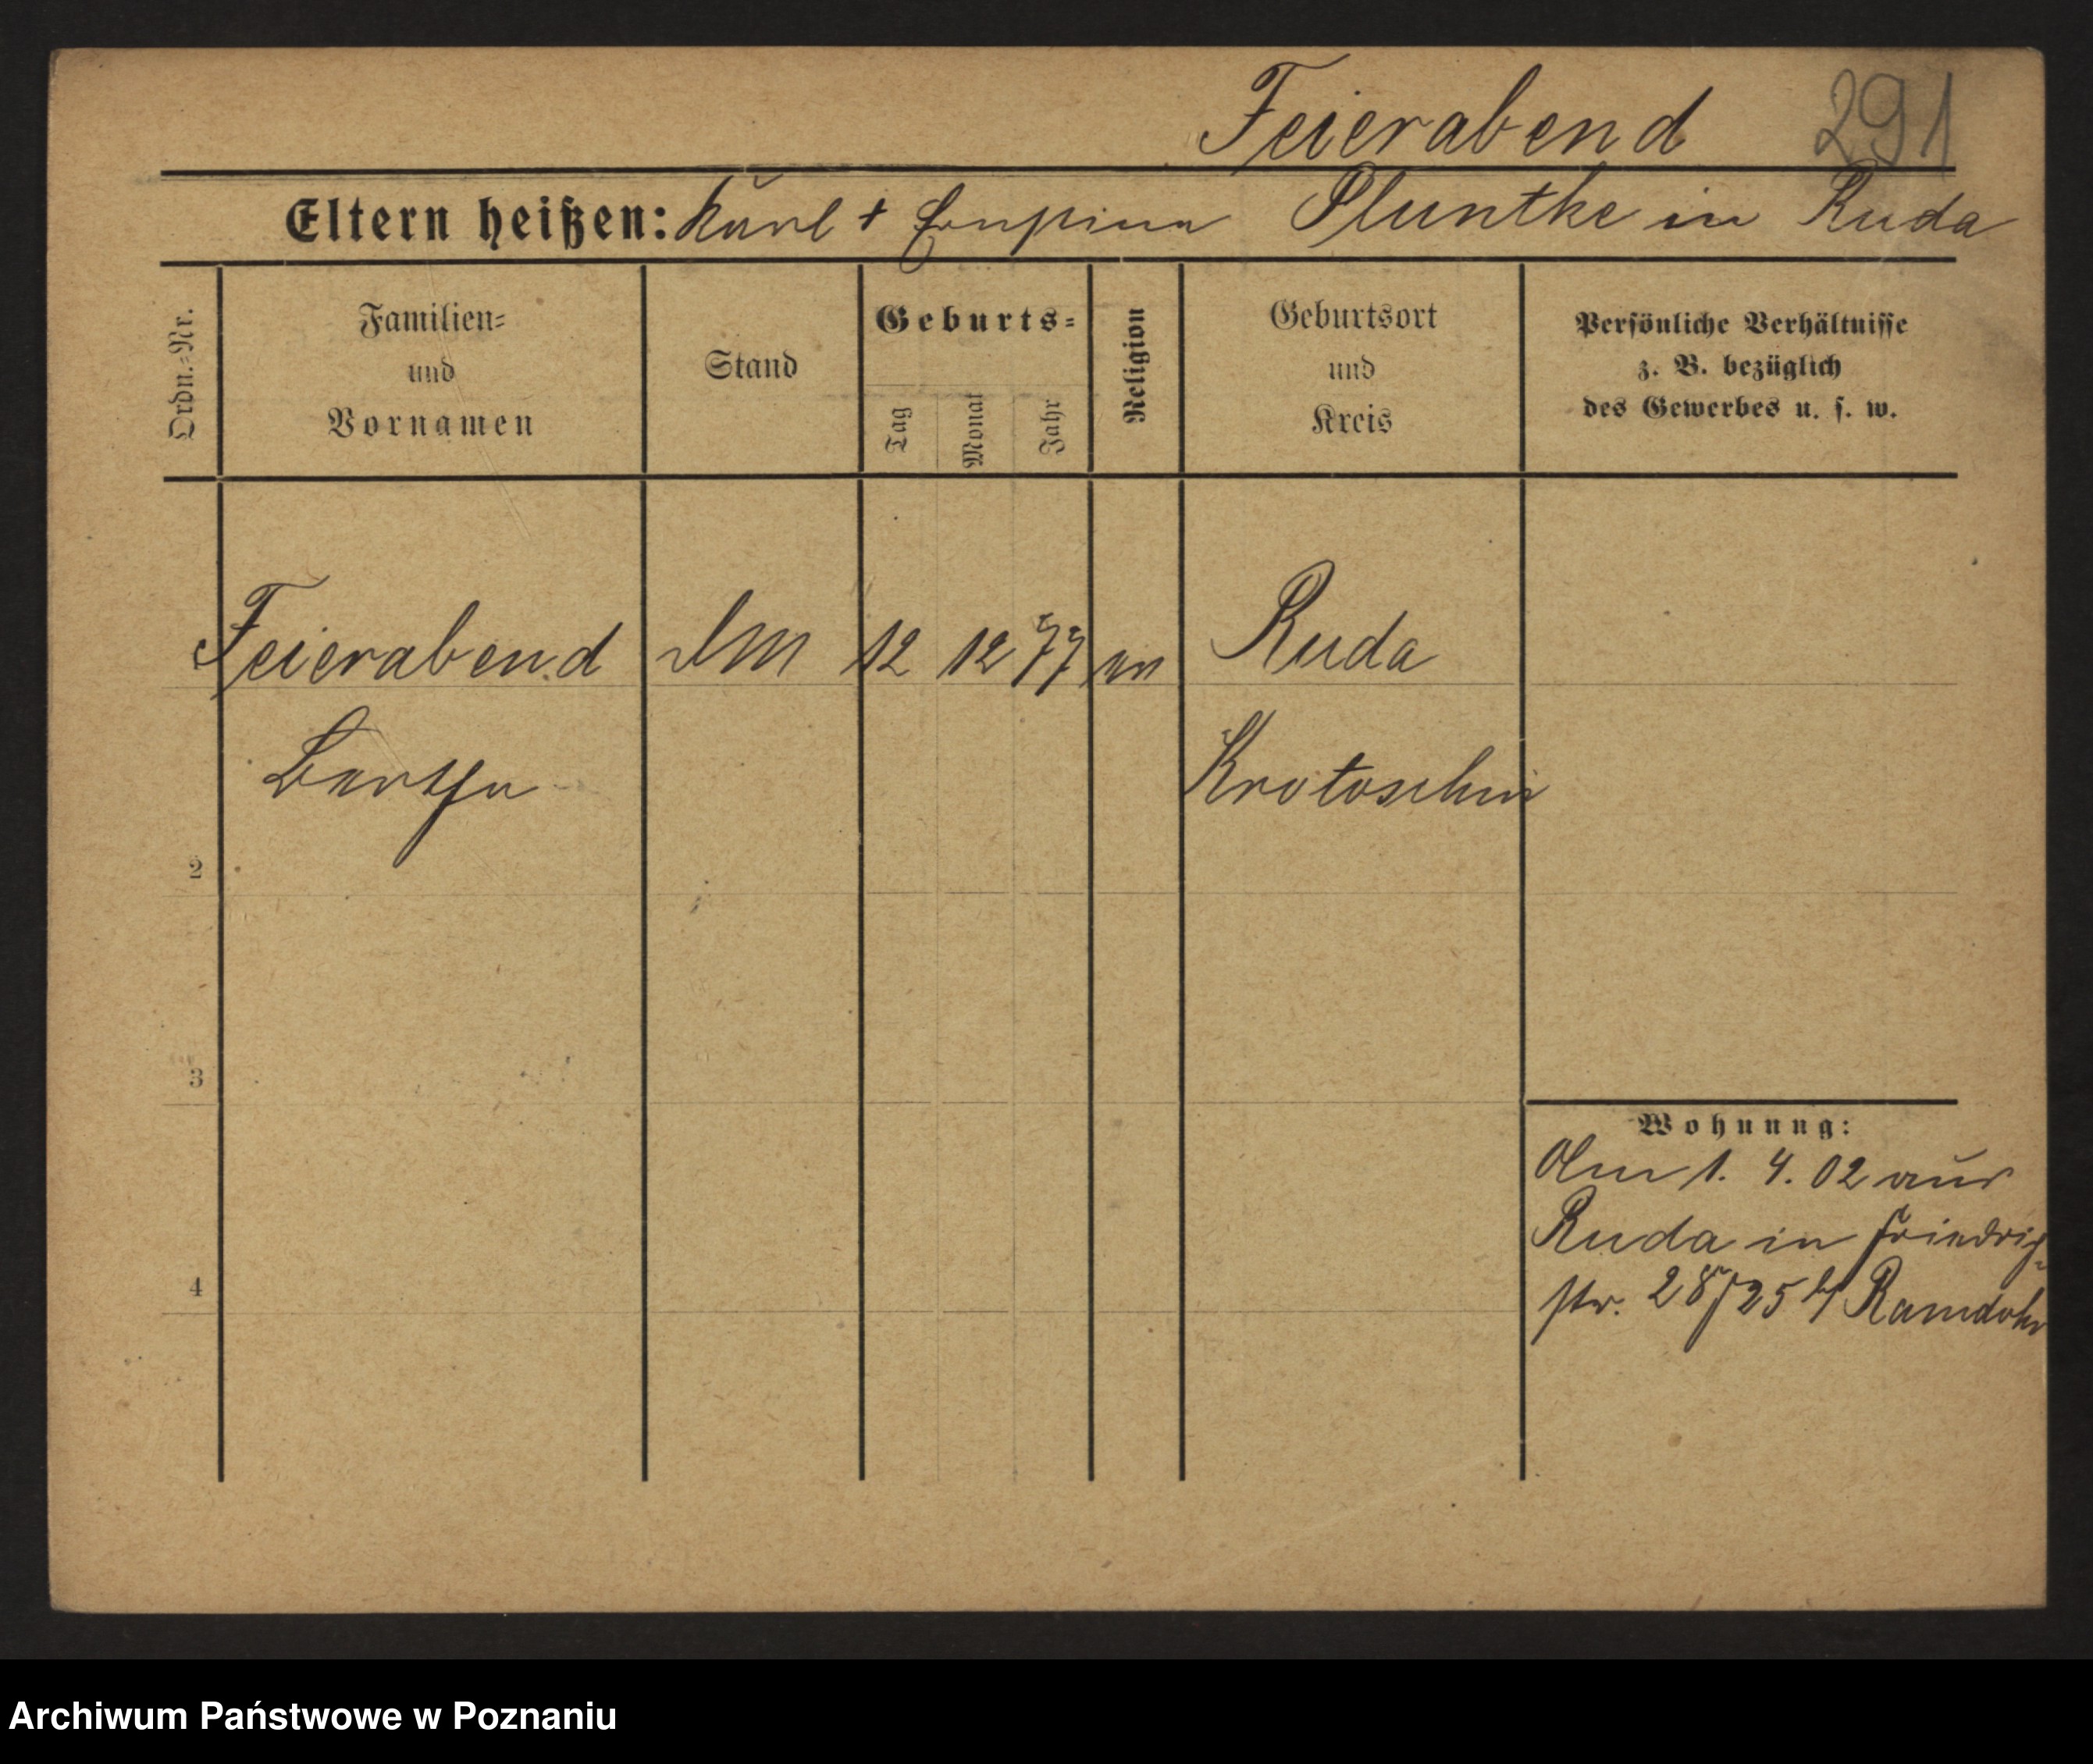 Feierabend 291
Eltern heißen: Karl + Ernestine Pluntke in Ruda
Ordn.-Nr.
Familien-
und
Vornamen
Stand
Geburts-
Tag
Monat
Jahr
Religion
Geburtsort
und
Kreis
Persönliche Verhältnisse
z. B. bezüglich
des Gewerbes u. s. w.
Feierabend DM 12 12 77 ev Ruda
Bertha Krotoschin
2
3
4
Wohnung:
Am 1. 4. 02 aus
Ruda in Friedrich-
str. 28/25 b/ Ramdohr
Archiwum Państwowe w Poznaniu